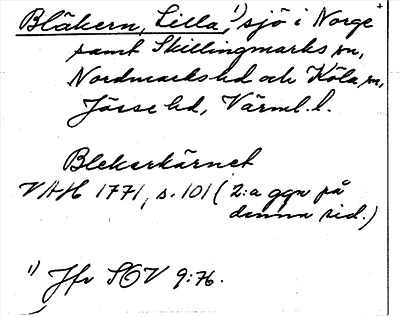 Bläkern, Lilla,¹) sjö i Norge
samt Skillingmarks sn,
Nordmarks hd och Köla sn,
Jösse hd, Värml. l.
Blekerkärnet
VAH 1771, s. 101 (2:a ggn på
denna sid.)
¹) Jfr SOV 9:76.